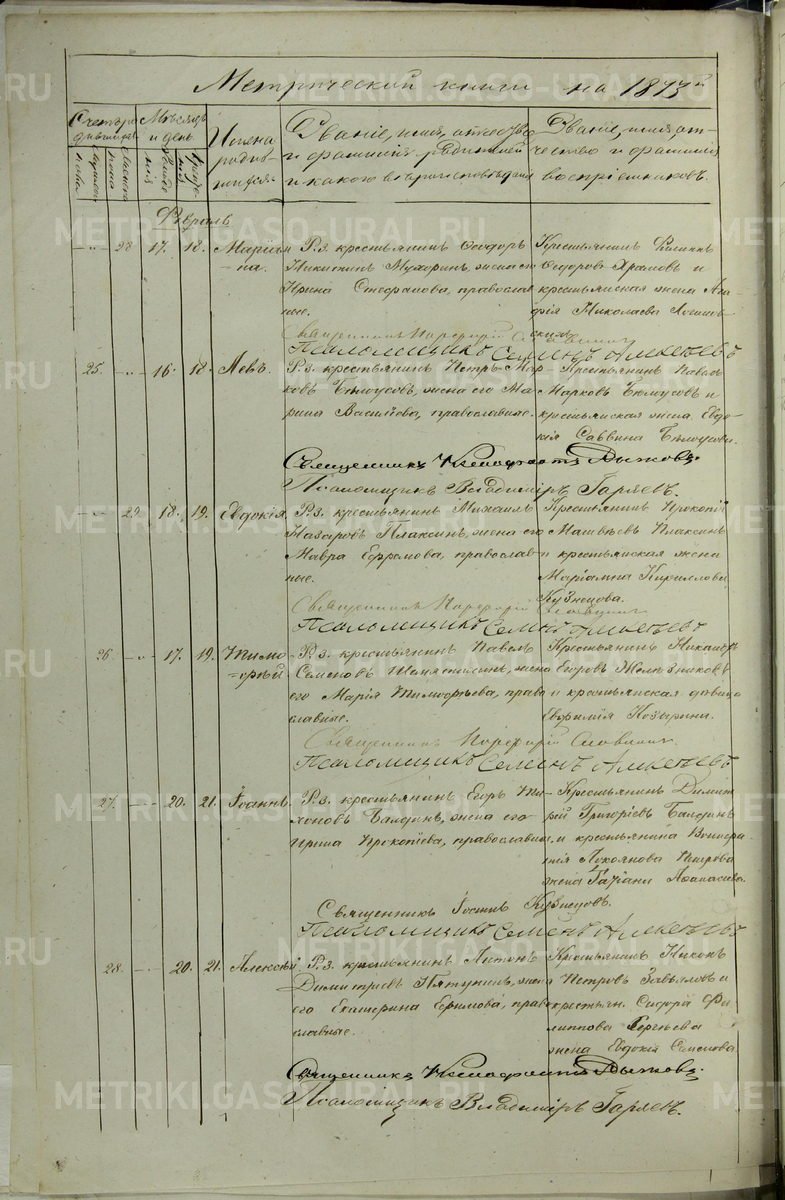 Метрической книги на 1873й
Счетъ ро-
дившихся.
Мѣсяцъ
и день.
Имена
родив-
шихся.
Званіе, имя, отчество
и фамилія родителей
и какого вѣроисповѣданія
Званіе, имя, от-
чество и фамилія
воспріемниковъ.
Февраль
28 17. 18. Маріам-
на.
Р.з. крестьянинъ Ѳеодоръ
Никитинъ Мухоринъ, жена его
Ирина Стефанова, православ-
ные.
Крестьянинъ Филиппъ
Ѳедоровъ Храмовъ и
крестьянская жена Ага-
фія Николаева
Священникъ Порфирій Словцовъ
Псаломщикъ Семенъ
25. 16. 18. Левъ.
Р.з. крестьянинъ Петръ Мар-
ковъ Бѣлоусовъ, жена его Ма-
рина Васильева, православные.
Крестьянинъ Павелъ
Марковъ Бѣлоусовъ и
крестьянская жена Евдо-
кія Саввина Бѣлоусова.
Священникъ Ксенофонтъ Рыжовъ.
Псаломщикъ Владиміръ Гаряевъ.
29. 18. 19. Евдокія.
Р.з. крестьянинъ Михаилъ
Назаровъ Плаксинъ, жена его
Мавра Ефремова, православ-
ные.
Крестьянинъ Прокопій
Матвѣевъ Плаксинъ
и крестьянская жена
Маріамна Кириллова
Кузнецова.
Священникъ Порфирій Словцовъ
Псаломщикъ Семенъ
26. 17. 19. Тимо-
фей
Р.з. крестьянинъ Павелъ
Семеновъ жена
его Марія Тимофѣева, право-
славные.
Крестьянинъ Никаноръ
Егоровъ Желѣзниковъ
и крестьянская дѣвица
Евфимія Козырина.
Священникъ Порфирій Словцовъ.
Псаломщикъ Семенъ
27. 20. 21. Іоаннъ.
Р.з. крестьянинъ Егоръ Ти-
хоновъ Балдинъ, жена его
Ирина Прокопіева, православные.
Крестьянинъ Димит-
рій Григорьевъ Балдинъ
и крестьянина
Лукоянова Петрова
жена Татіана Аѳанасьева.
Священникъ Іустинъ Кузнецовъ.
Псаломщикъ Семенъ
28. 20. 21. Алексѣй.
Р.з. крестьянинъ Антонъ
Димитріевъ Пятунинъ, жена
его Екатерина Ефимова, право-
славные.
Крестьянинъ Никонъ
Петровъ Завьяловъ и
крестьян. Сидора Фи-
липпова Сергѣева
жена Евдокія Семенова.
Священникъ Ксенофонтъ Рыжовъ.
Псаломщикъ Владиміръ Гаряевъ.
METRIKI.GASO-URAL.RU